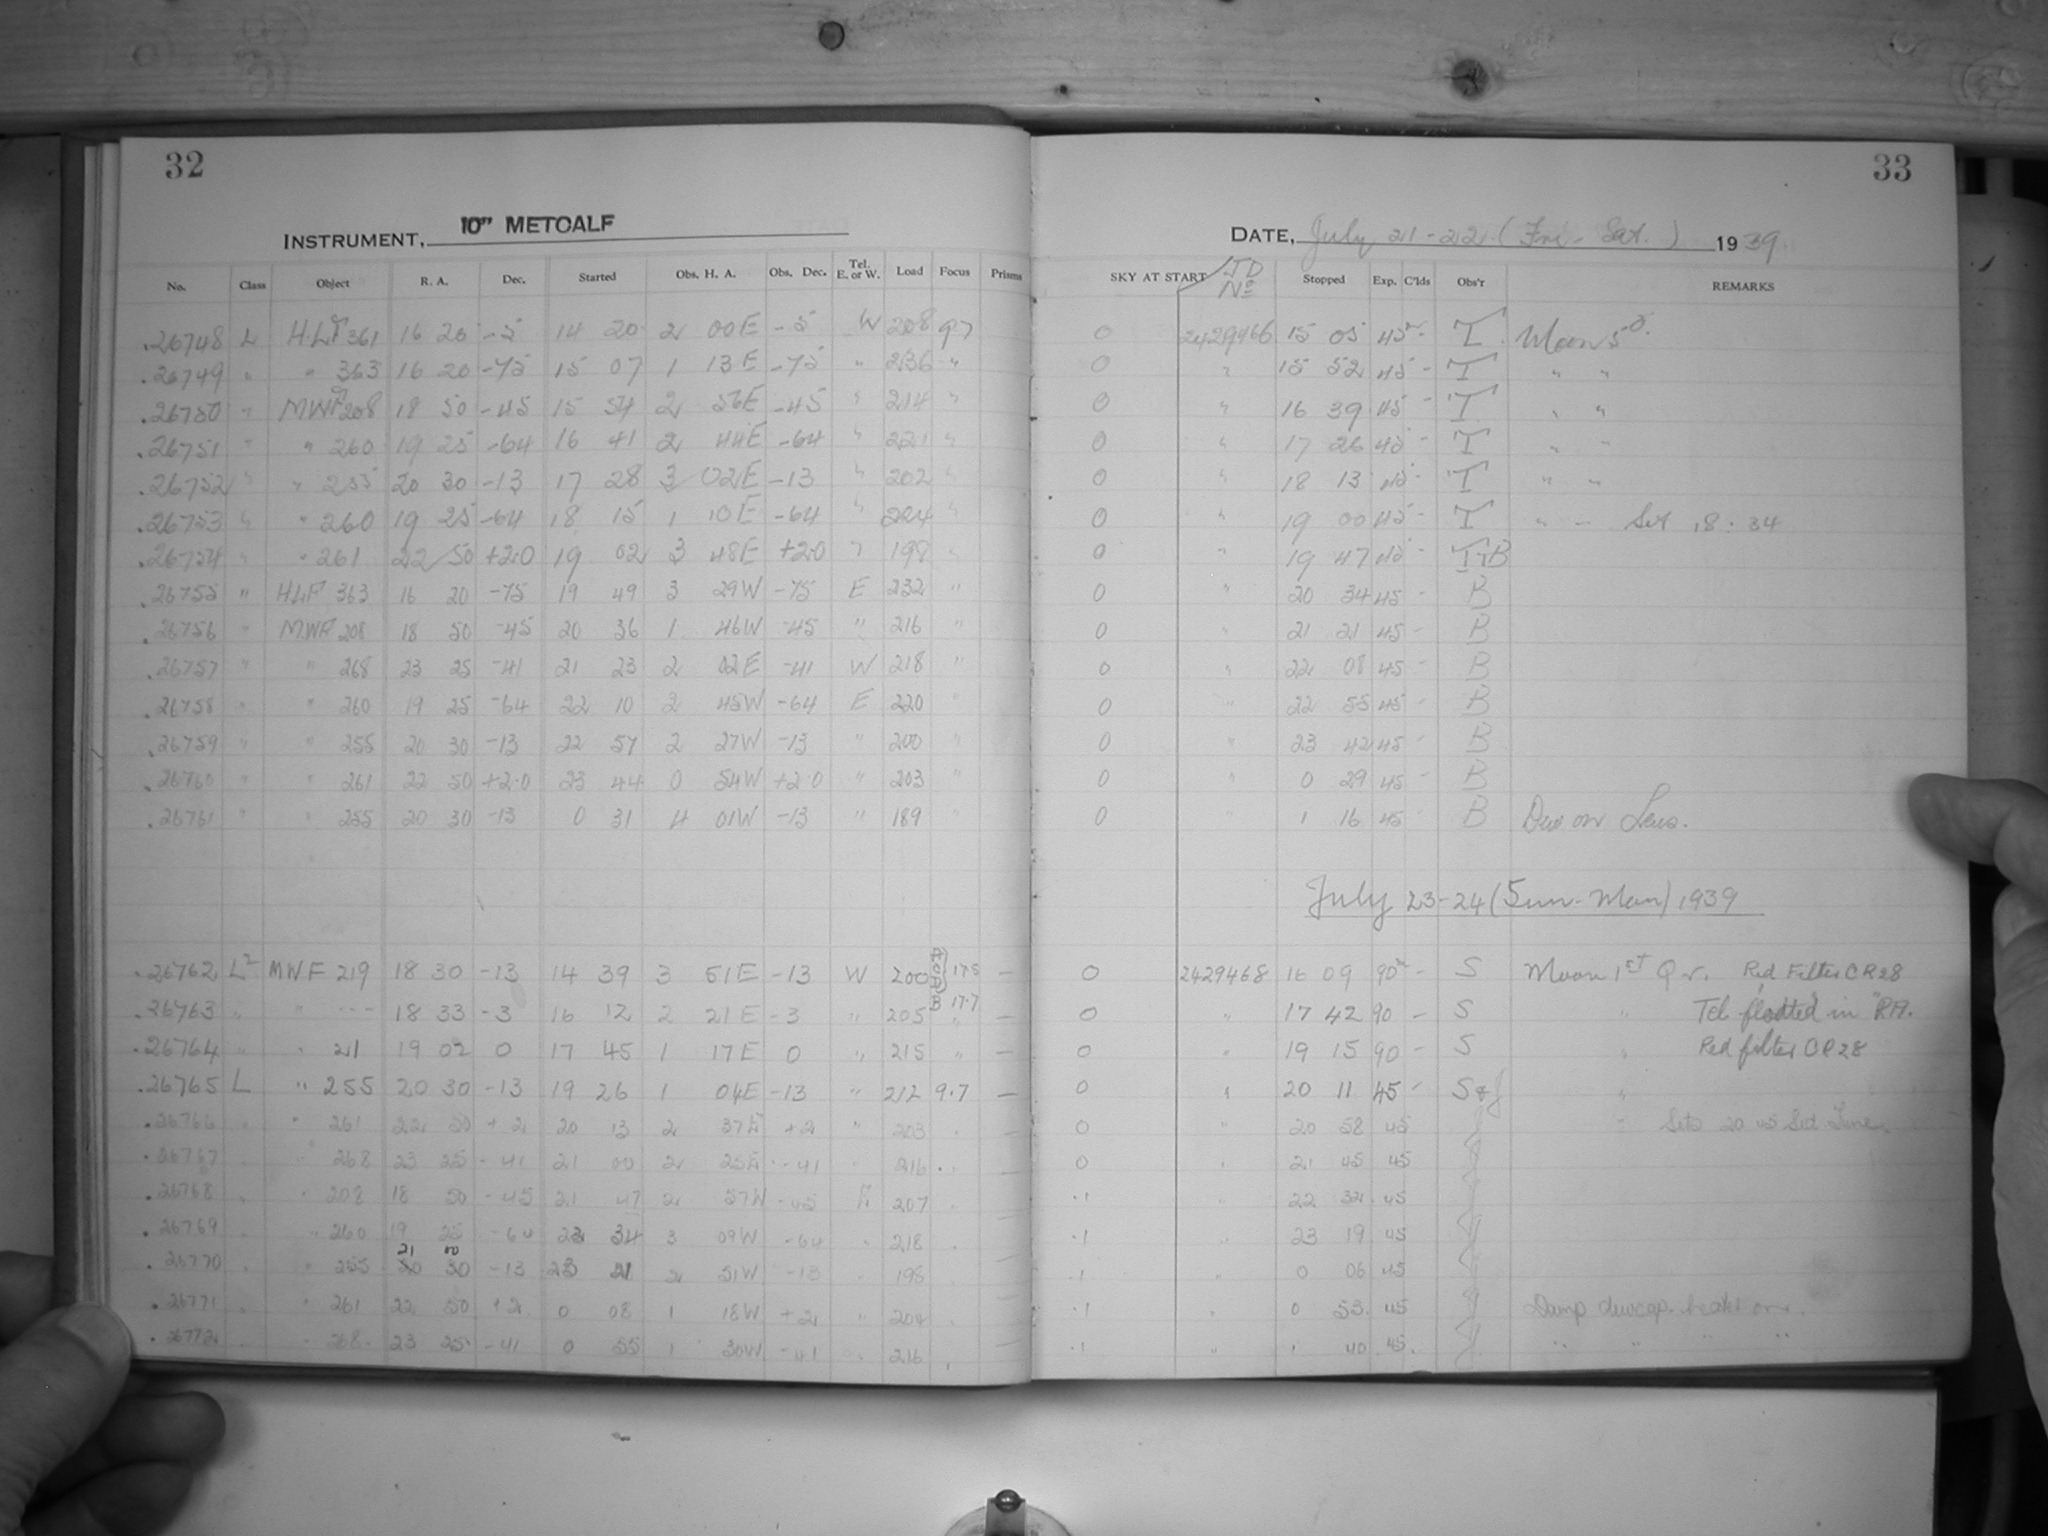 32
INSTRUMENT, 10" METCALF
No. Class Object R. A. Dec. Started Obs. H. A. Obs. Dec. Tel. E. or W. Load Focus Prisms
.26748 L 361 16 20 -5 14 20 2 00E -5 W 208 9.7
.26749 " " 363 16 20 -75 15 07 1 13E -75 " 236 "
.26750 " MWF 208 18 50 -45 15 54 2 56E -45 " 214 "
.26751 " " 260 19 25 -64 16 41 2 44E -64 " 221 "
.26752 " " 255 20 30 -13 17 28 3 02E -13 " 202 "
.26753 " " 260 19 25 -64 18 15 1 10E -64 " 224 "
.26754 " " 261 22 50 +2.0 19 02 3 48E +2.0 " 198 "
.26755 " HLF 363 16 20 -75 19 49 3 29W -75 E 232 "
.26756 " MWF 208 18 50 -45 20 36 1 46W -45 " 216 "
.26757 " " 268 23 25 -41 21 23 2 02E -41 W 218 "
.26758 " " 260 19 25 -64 22 10 2 45W -64 E 220
.26759 " " 255 20 30 -13 22 57 2 27W -13 " 200 "
.26760 " " 261 22 50 +2.0 23 44 0 54W +2.0 " 203 "
.26761 " " 255 20 30 -13 0 31 4 01W -13 " 189 "
.26762 L2 MWF 219 18 30 -13 14 39 3 51E -13 W 200 17.5 —
.26763 " " --- 18 33 -3 16 12 2 21E -3 " 205 B 17.7 " —
.26764 " " 211 19 02 0 17 45 1 17E 0 " 215 " —
.26765 L " 255 20 30 -13 19 26 1 04E -13 " 212 9.7 —
.26766 " " 261 22 50 +2 20 13 2 37E +2 " 203
.26767 " 268 23 25 -41 21 00 2 25E -41 " 216
.26768 " " 208 18 50 -45 21 47 2 57W -45 E 207
.26769 " 260 19 25 -64 22 34 3 09W -64 " 218
21 00
.26770 " 255 20 30 -13 23 21 2 51W -13 " 198
.26771 " 261 22 50 +2 0 08 1 18W +2 " 204
.26772 " 268 23 25 -41 0 55 1 30W -41 " 216
33
DATE, July 21-22 (Fri-Sat.) 1939
SKY AT START JD No Stopped Exp. C'lds Obs'r REMARKS
0 2429466 15 05 45m - T Moon 5d.
0 " 15 52 45 - T " "
0 " 16 39 45 - T " "
0 " 17 26 45 - T " "
0 " 18 13 45 - T " "
0 " 19 00 45 - T " - Set 18:34
0 " 19 47 45 - T+B
0 " 20 34 45 - B
0 " 21 21 45 - B
0 " 22 08 45 - B
0 " 22 55 45 - B
0 " 23 42 45 - B
0 " 0 29 45 - B
0 " 1 16 45 - B Dew on Lens.
July 23-24 (Sun-Mon) 1939
0 2429468 16 09 90m - S Moon 1st Qr. Red Filter CR28
0 " 17 42 90 - S " Tel. in RA.
0 " 19 15 90 - S " Red filter CR28
0 " 20 11 45 - S & J "
0 " 20 58 45 J " Sets 20 45 Sid Time
0 " 21 45 45 J
.1 " 22 32 45 J
.1 " 23 19 45 J
.1 " 0 06 45 J
.1 " 0 53 45 J Damp dewcap heater on.
.1 " 1 40 45 J " " " "